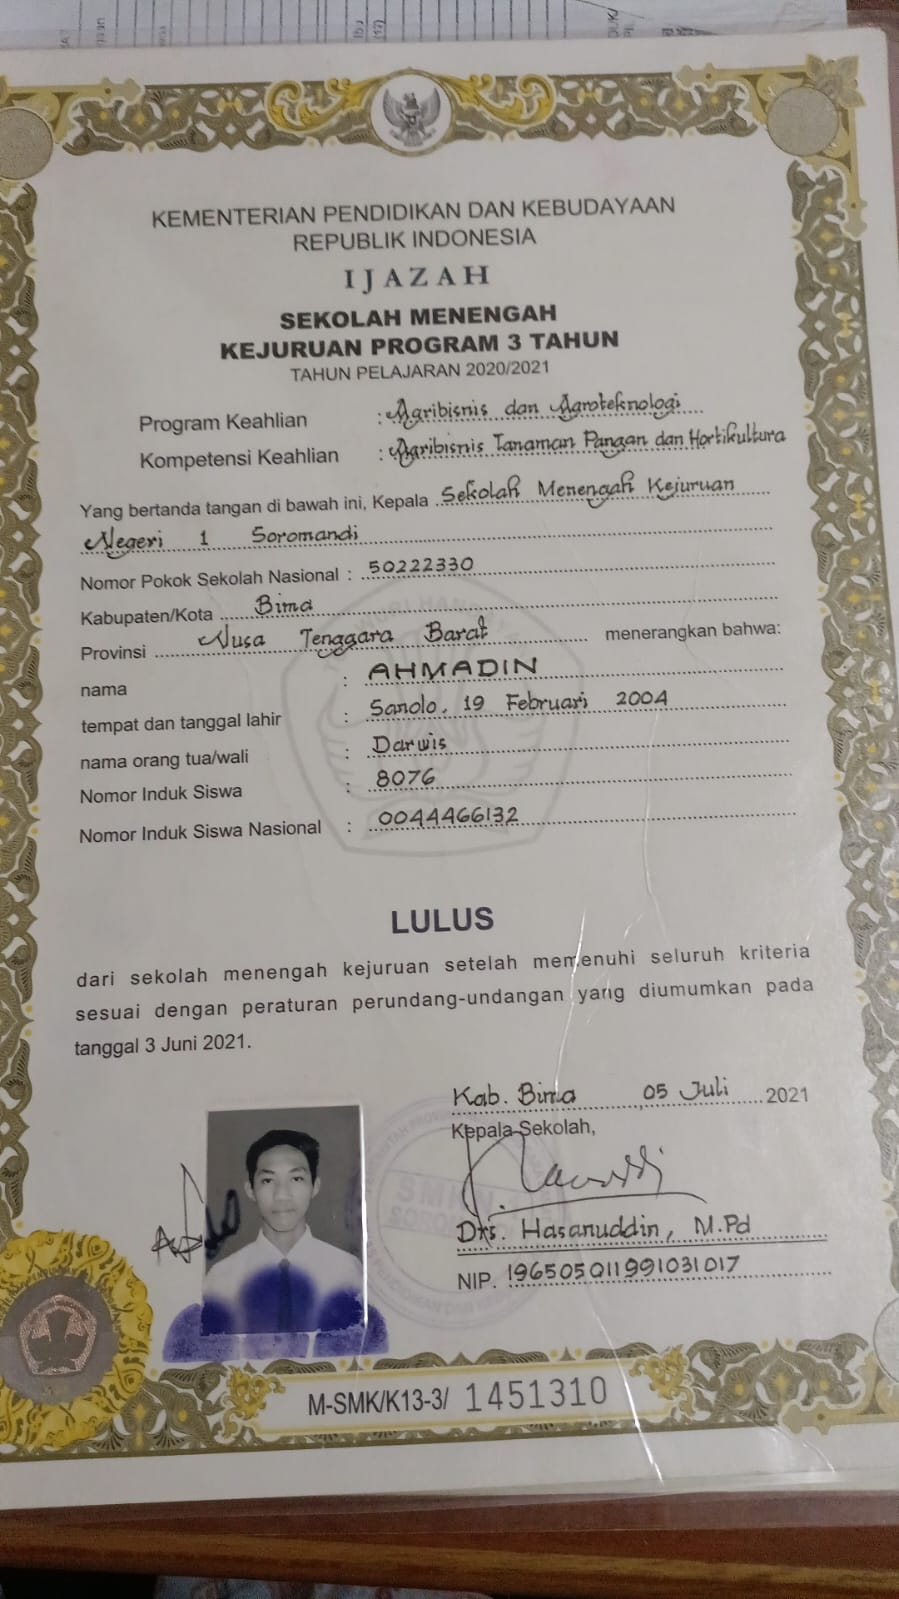 KEMENTERIAN PENDIDIKAN DAN KEBUDAYAAN
REPUBLIK INDONESIA
IJAZAH
SEKOLAH MENENGAH
KEJURUAN PROGRAM 3 TAHUN
TAHUN PELAJARAN 2020/2021
Program Keahlian : Agribisnis dan Agroteknologi
Kompetensi Keahlian : Agribisnis Tanaman Pangan dan Hortikultura
Yang bertanda tangan di bawah ini, Kepala Sekolah Menengah Kejuruan
Negeri 1 Soromandi
Nomor Pokok Sekolah Nasional : 50222330
Kabupaten/Kota Bima
Provinsi Nusa Tenggara Barat menerangkan bahwa:
nama : AHMADIN
tempat dan tanggal lahir : Sanolo, 19 Februari 2004
nama orang tua/wali : Darwis
Nomor Induk Siswa : 8076
Nomor Induk Siswa Nasional : 0044466132
LULUS
dari sekolah menengah kejuruan setelah memenuhi seluruh kriteria
sesuai dengan peraturan perundang-undangan yang diumumkan pada
tanggal 3 Juni 2021.
Kab. Bima , 05 Juli 2021
Kepala Sekolah,
Drs. Hasanuddin, M.Pd
NIP. 196505011991031017
M-SMK/K13-3/ 1451310